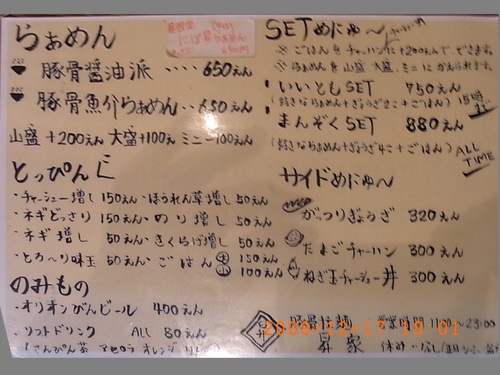 らぁめん
豚骨醤油派・・・・650えん
豚骨魚介らぁめん・・650えん
山盛+200えん 大盛+100えん ミニー100えん
とっぴんぐ
・チャーシュー増し 150えん・ほうれん草増し 50えん
・ネギどっさり 150えん・のり増し 50えん
・ネギ増し 50えん・きくらげ増し 50えん
・とろ〜り味玉 50えん・ごはん 大 150えん
小 100えん
のみもの
・オリオンびんビール 400えん
・ソフトドリンク ALL 80えん
(さんぴん茶 アセロラ オレンジ
SETめにゅ〜
※ごはんをチャーハンに+200えんでできます。
※らぁめんを山盛、大盛、ミニにかえられます。
・いいともSET 750えん
(好きならぁめん+ぎょうざ2こ+ごはん) 15時まで
・まんぞくSET 880えん
(好きならぁめん+ぎょうざ4こ+ごはん) ALL TIME
サイドめにゅ〜
がっつりぎょうざ 320えん
たまごチャーハン 300えん
ねぎ玉チャーシュー丼 300えん
豚骨拉麺 営業時間 11:00〜23:00
昇家 休みなし
2009/12/17 19:01